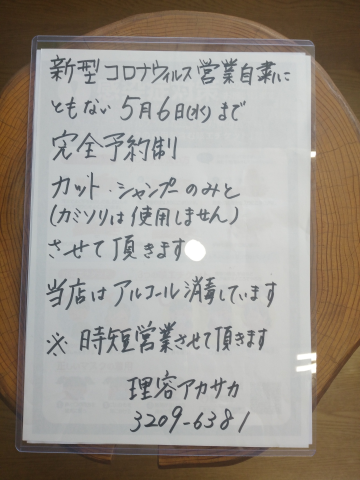 新型コロナウィルス営業自粛に
ともない5月6日(水)まで
完全予約制
カット・シャンプーのみと
(カミソリは使用しません)
させて頂きます
当店はアルコール消毒しています
※時短営業させて頂きます
理容アカサカ
3209-6381